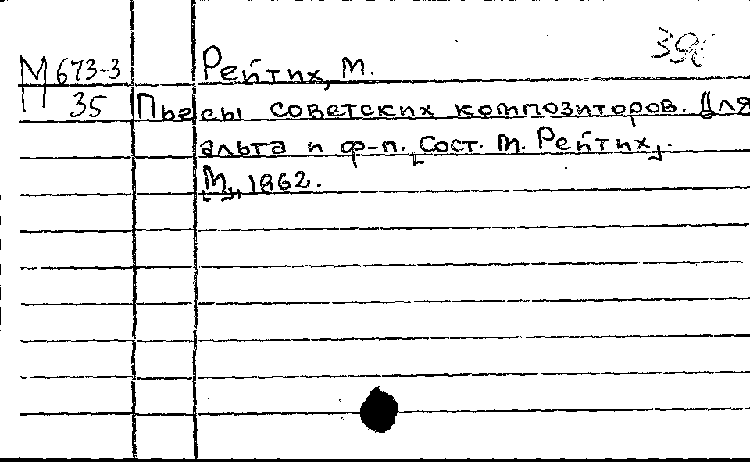 М 673-3 Рейтих, М.
35 Пьесы советских композиторов. Для
альта и ф-п. [Сост. М. Рейтих].
[М.], 1962.